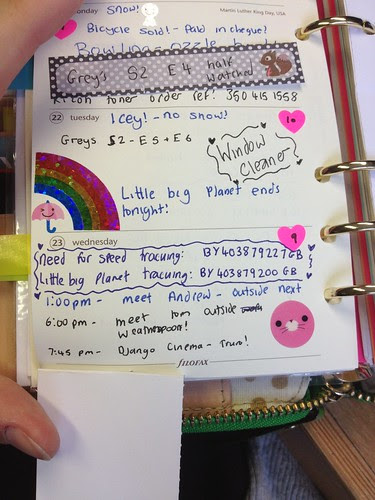 onday Snow! Martin Luther King Day, USA
Bicycle Sold! - Paid in cheque!
Grey's S2 E4 half watched
toner order ref: 350 415 1558
22 tuesday Icey! - no snow!
10
Greys S2 - E5 + E6
Window Cleaner
Little big Planet ends
tonight!
23 wednesday
9
Need for speed tracuing: BY403879227GB
Little big Planet tracuing: BY403879200GB
1:00pm - meet Andrew - outside next
6:00 pm - meet Tom outside
weatherspoon!
7:45 pm - Django Cinema - Truro!
FILOFAX